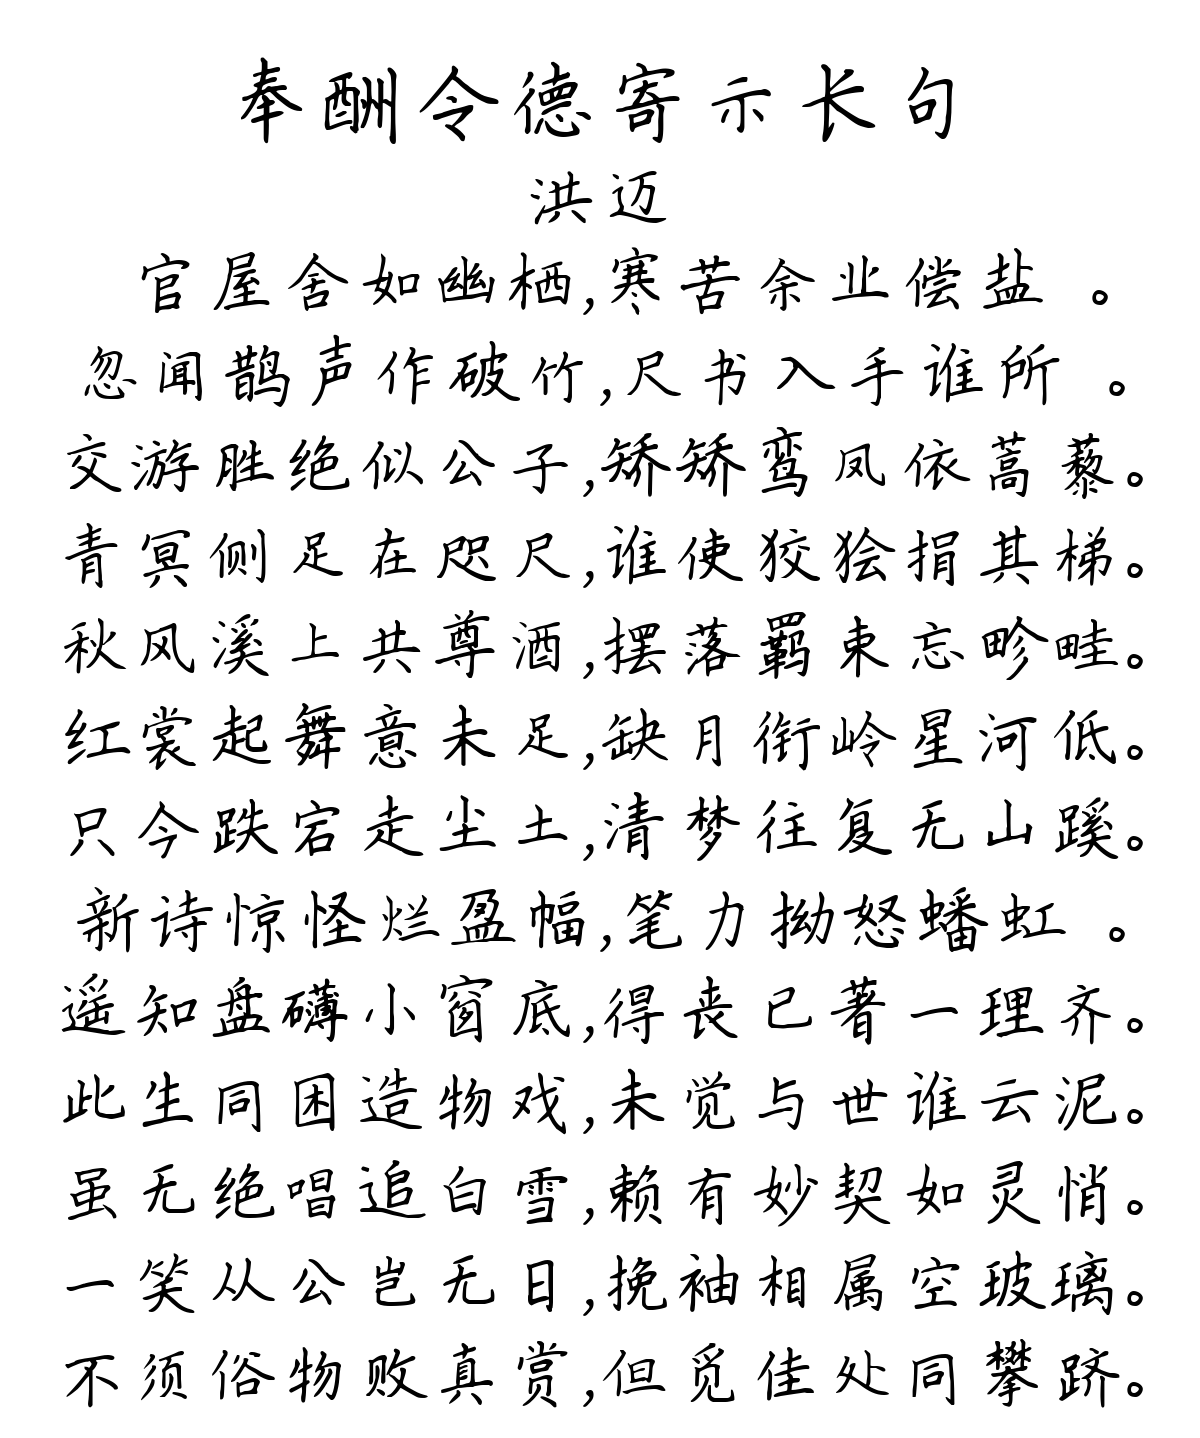 奉酬令德寄示长句
洪迈
官屋舍如幽栖,寒苦余业偿盐 。
忽闻鹊声作破竹,尺书入手谁所 。
交游胜绝似公子,矫矫鸾凤依蒿藜。
青冥侧足在咫尺,谁使狡狯捐其梯。
秋风溪上共尊酒,摆落羁束忘畛畦。
红裳起舞意未足,缺月衔岭星河低。
只今跌宕走尘土,清梦往复无山蹊。
新诗惊怪烂盈幅,笔力拗怒蟠虹 。
遥知盘礴小窗底,得丧已著一理齐。
此生同困造物戏,未觉与世谁云泥。
虽无绝唱追白雪,赖有妙契如灵悄。
一笑从公岂无日,挽袖相属空玻璃。
不须俗物败真赏,但觅佳处同攀跻。